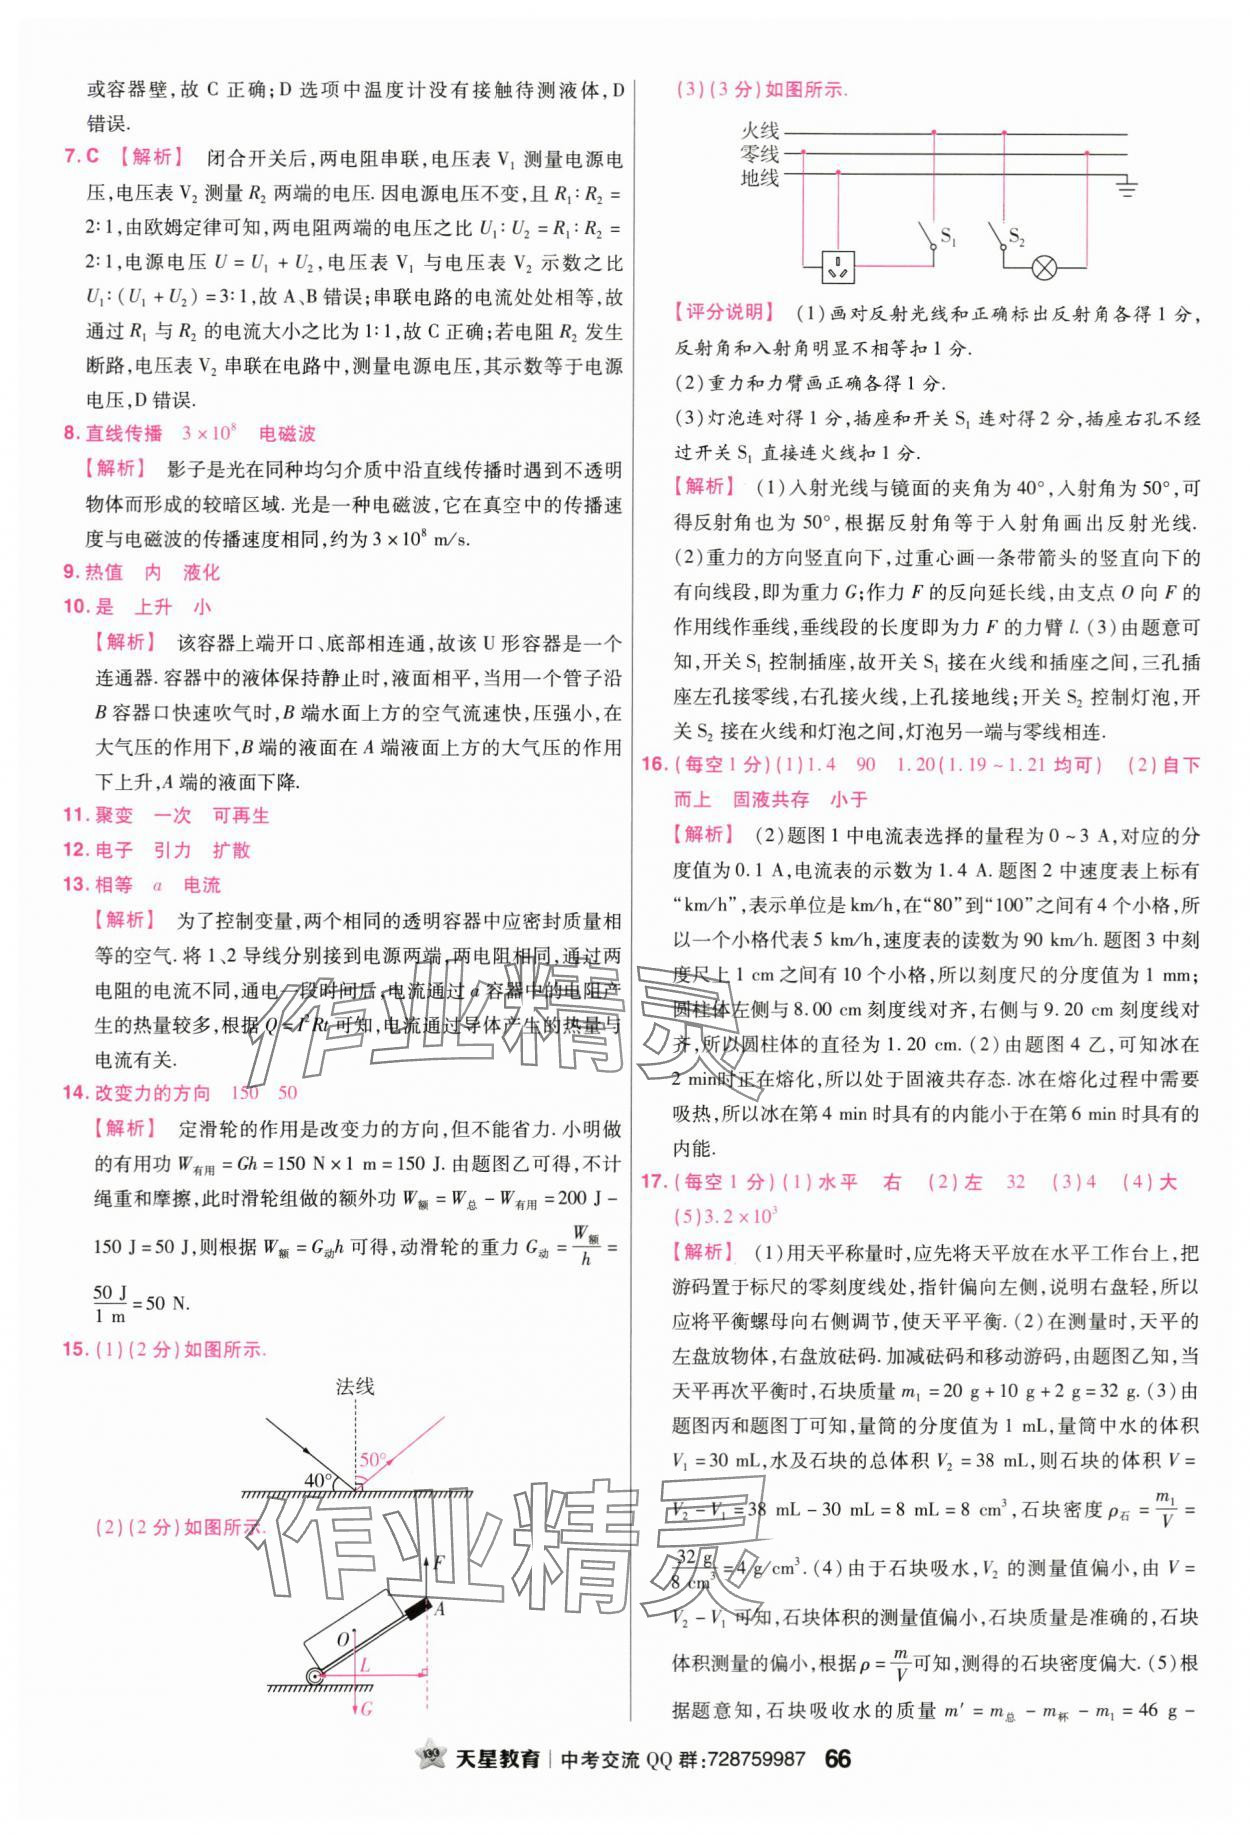 或容器壁,故 C 正确;D 选项中温度计没有接触待测液体,D
错误.
7. C 【解析】 闭合开关后,两电阻串联,电压表 V₁ 测量电源电
压,电压表 V₂ 测量 R₂ 两端的电压. 因电源电压不变,且 R₁∶R₂ =
2∶1,由欧姆定律可知,两电阻两端的电压之比 U₁∶U₂ = R₁∶R₂ =
2∶1,电源电压 U = U₁ + U₂,电压表 V₁ 与电压表 V₂ 示数之比
U₁∶(U₁ + U₂) = 3∶1,故 A、B 错误;串联电路的电流处处相等,故
通过 R₁ 与 R₂ 的电流大小之比为 1∶1,故 C 正确;若电阻 R₂ 发生
断路,电压表 V₂ 串联在电路中,测量电源电压,其示数等于电源
电压,D 错误.
8. 直线传播 3 × 10⁸ 电磁波
【解析】 影子是光在同种均匀介质中沿直线传播时遇到不透明
物体而形成的较暗区域. 光是一种电磁波,它在真空中的传播速
度与电磁波的传播速度相同,约为 3 × 10⁸ m/s.
9. 热值 内 液化
10. 是 上升 小
【解析】 该容器上端开口、底部相连通,故该 U 形容器是一个
连通器. 容器中的液体保持静止时,液面相平,当用一个管子沿
B 容器口快速吹气时,B 端水面上方的空气流速快,压强小,在
大气压的作用下,B 端的液面在 A 端液面上方的大气压的作用
下上升,A 端的液面下降.
11. 聚变 一次 可再生
12. 电子 引力 扩散
13. 相等 a 电流
【解析】 为了控制变量,两个相同的透明容器中应密封质量相
等的空气. 将 1、2 导线分别接到电源两端,两电阻相同,通过两
电阻的电流不同,通电一段时间后,电流通过 a 容器中的电阻产
生的热量较多,根据 Q = I²Rt 可知,电流通过导体产生的热量与
电流有关.
14. 改变力的方向 150 50
【解析】 定滑轮的作用是改变力的方向,但不能省力. 小明做
的有用功 W有用 = Gh = 150 N × 1 m = 150 J. 由题图乙可得,不计
绳重和摩擦,此时滑轮组做的额外功 W额 = W总 - W有用 = 200 J -
150 J = 50 J,则根据 W额 = G动h 可得,动滑轮的重力 G动 = W额/h =
50 J/1 m = 50 N.
15. (1)(2 分)如图所示.
法线
50°
40°
(2)(2 分)如图所示.
F
A
O
L
G
(3)(3 分)如图所示.
火线
零线
地线
S₁ S₂
【评分说明】 (1)画对反射光线和正确标出反射角各得 1 分,
反射角和入射角明显不相等扣 1 分.
(2)重力和力臂画正确各得 1 分.
(3)灯泡连对得 1 分,插座和开关 S₁ 连对得 2 分,插座右孔不经
过开关 S₁ 直接连火线扣 1 分.
【解析】 (1)入射光线与镜面的夹角为 40°,入射角为 50°,可
得反射角也为 50°,根据反射角等于入射角画出反射光线.
(2)重力的方向竖直向下,过重心画一条带箭头的竖直向下的
有向线段,即为重力 G;作力 F 的反向延长线,由支点 O 向 F 的
作用线作垂线,垂线段的长度即为力 F 的力臂 l. (3)由题意可
知,开关 S₁ 控制插座,故开关 S₁ 接在火线和插座之间,三孔插
座左孔接零线,右孔接火线,上孔接地线;开关 S₂ 控制灯泡,开
关 S₂ 接在火线和灯泡之间,灯泡另一端与零线相连.
16. (每空 1 分)(1)1.4 90 1.20(1.19 ~ 1.21 均可) (2)自下
而上 固液共存 小于
【解析】 (2)题图 1 中电流表选择的量程为 0 ~ 3 A,对应的分
度值为 0.1 A,电流表的示数为 1.4 A. 题图 2 中速度表上标有
“km/h”,表示单位是 km/h,在“80”到“100”之间有 4 个小格,所
以一个小格代表 5 km/h,速度表的读数为 90 km/h. 题图 3 中刻
度尺上 1 cm 之间有 10 个小格,所以刻度尺的分度值为 1 mm;
圆柱体左侧与 8.00 cm 刻度线对齐,右侧与 9.20 cm 刻度线对
齐,所以圆柱体的直径为 1.20 cm. (2)由题图 4 乙,可知冰在
2 min时正在熔化,所以处于固液共存态. 冰在熔化过程中需要
吸热,所以冰在第 4 min 时具有的内能小于在第 6 min 时具有的
内能.
17. (每空 1 分)(1)水平 右 (2)左 32 (3)4 (4)大
(5)3.2 × 10³
【解析】 (1)用天平称量时,应先将天平放在水平工作台上,把
游码置于标尺的零刻度线处,指针偏向左侧,说明右盘轻,所以
应将平衡螺母向右侧调节,使天平平衡. (2)在测量时,天平的
左盘放物体,右盘放砝码. 加减砝码和移动游码,由题图乙知,当
天平再次平衡时,石块质量 m₁ = 20 g + 10 g + 2 g = 32 g. (3)由
题图丙和题图丁可知,量筒的分度值为 1 mL,量筒中水的体积
V₁ = 30 mL,水及石块的总体积 V₂ = 38 mL,则石块的体积 V =
V₂ - V₁ = 38 mL - 30 mL = 8 mL = 8 cm³,石块密度 ρ石 = m₁/V =
32 g/8 cm³ = 4 g/cm³. (4)由于石块吸水,V₂ 的测量值偏小,由 V =
V₂ - V₁ 可知,石块体积的测量值偏小,石块质量是准确的,石块
体积测量的偏小,根据 ρ = m/V 可知,测得的石块密度偏大. (5)根
据题意知,石块吸收水的质量 m′ = m总 - m杯 - m₁ = 46 g -
天星教育 | 中考交流 QQ 群:728759987 66
作业精灵
作业精灵